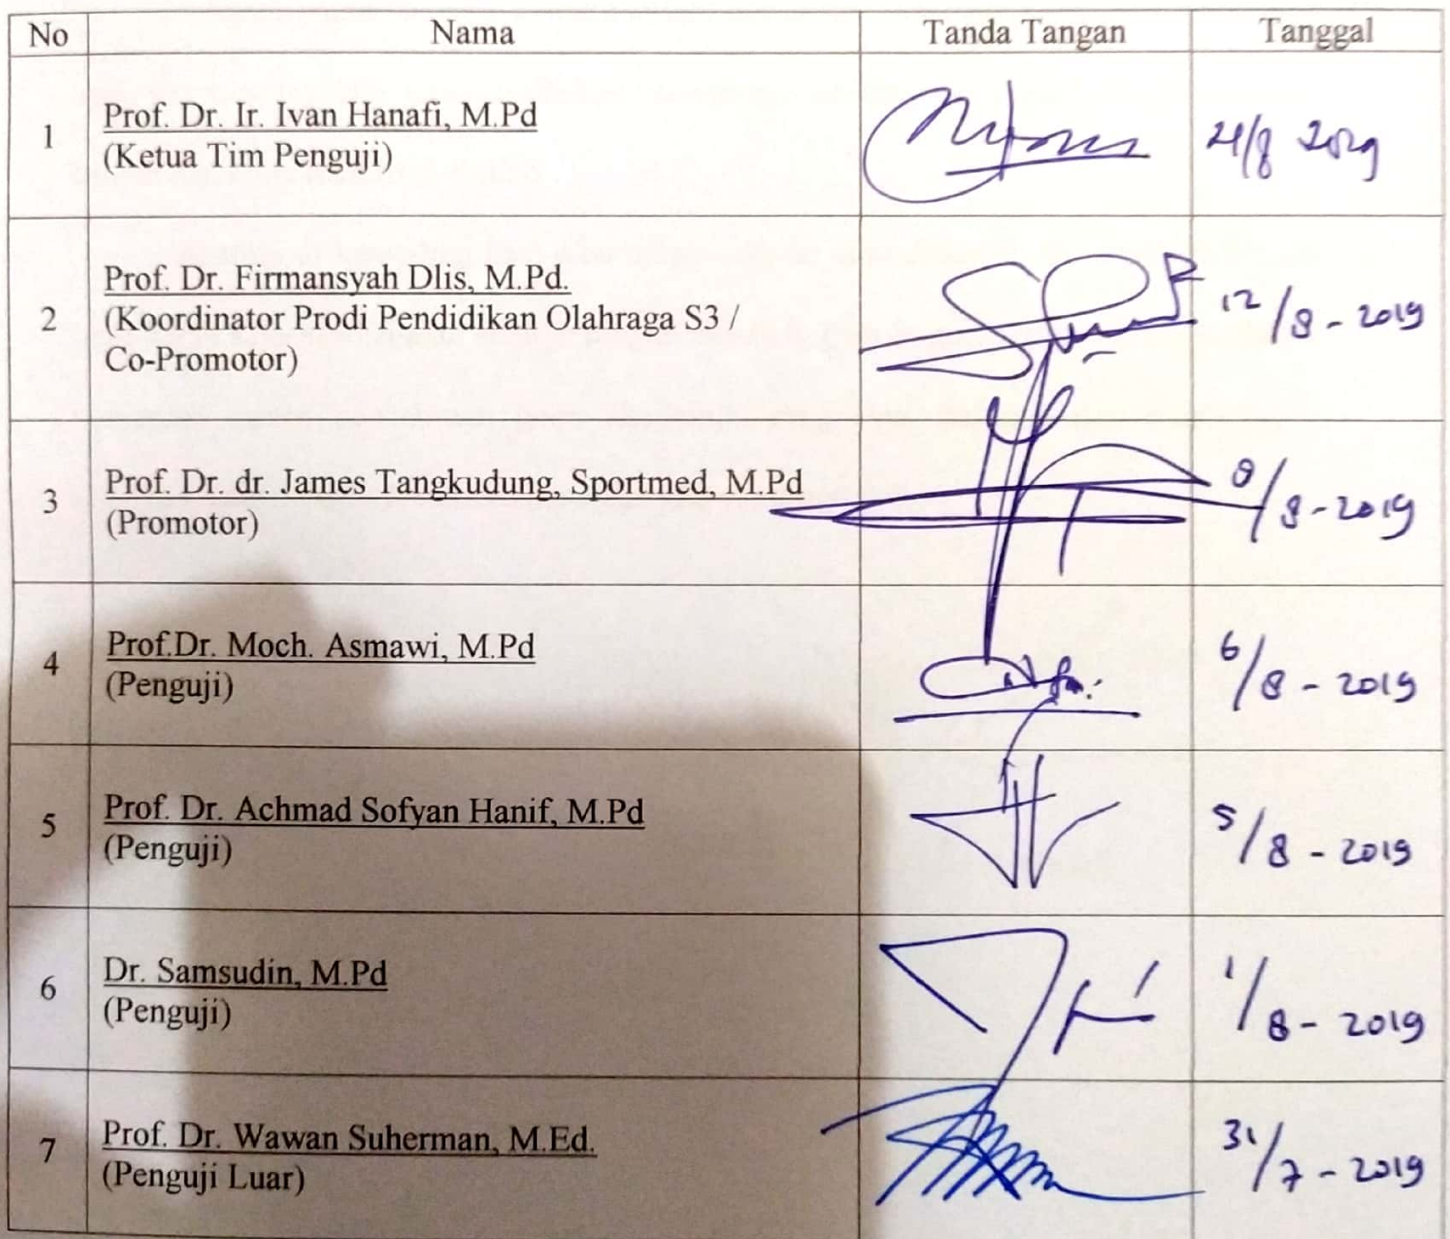 No Nama Tanda Tangan Tanggal
1 Prof. Dr. Ir. Ivan Hanafi, M.Pd
(Ketua Tim Penguji)
21/8 2019
2 Prof. Dr. Firmansyah Dlis, M.Pd.
(Koordinator Prodi Pendidikan Olahraga S3 /
Co-Promotor)
12/8 - 2019
3 Prof. Dr. dr. James Tangkudung, Sportmed, M.Pd
(Promotor)
8/8 - 2019
4 Prof.Dr. Moch. Asmawi, M.Pd
(Penguji)
6/8 - 2019
5 Prof. Dr. Achmad Sofyan Hanif, M.Pd
(Penguji)
5/8 - 2019
6 Dr. Samsudin, M.Pd
(Penguji)
1/8 - 2019
7 Prof. Dr. Wawan Suherman, M.Ed.
(Penguji Luar)
31/7 - 2019